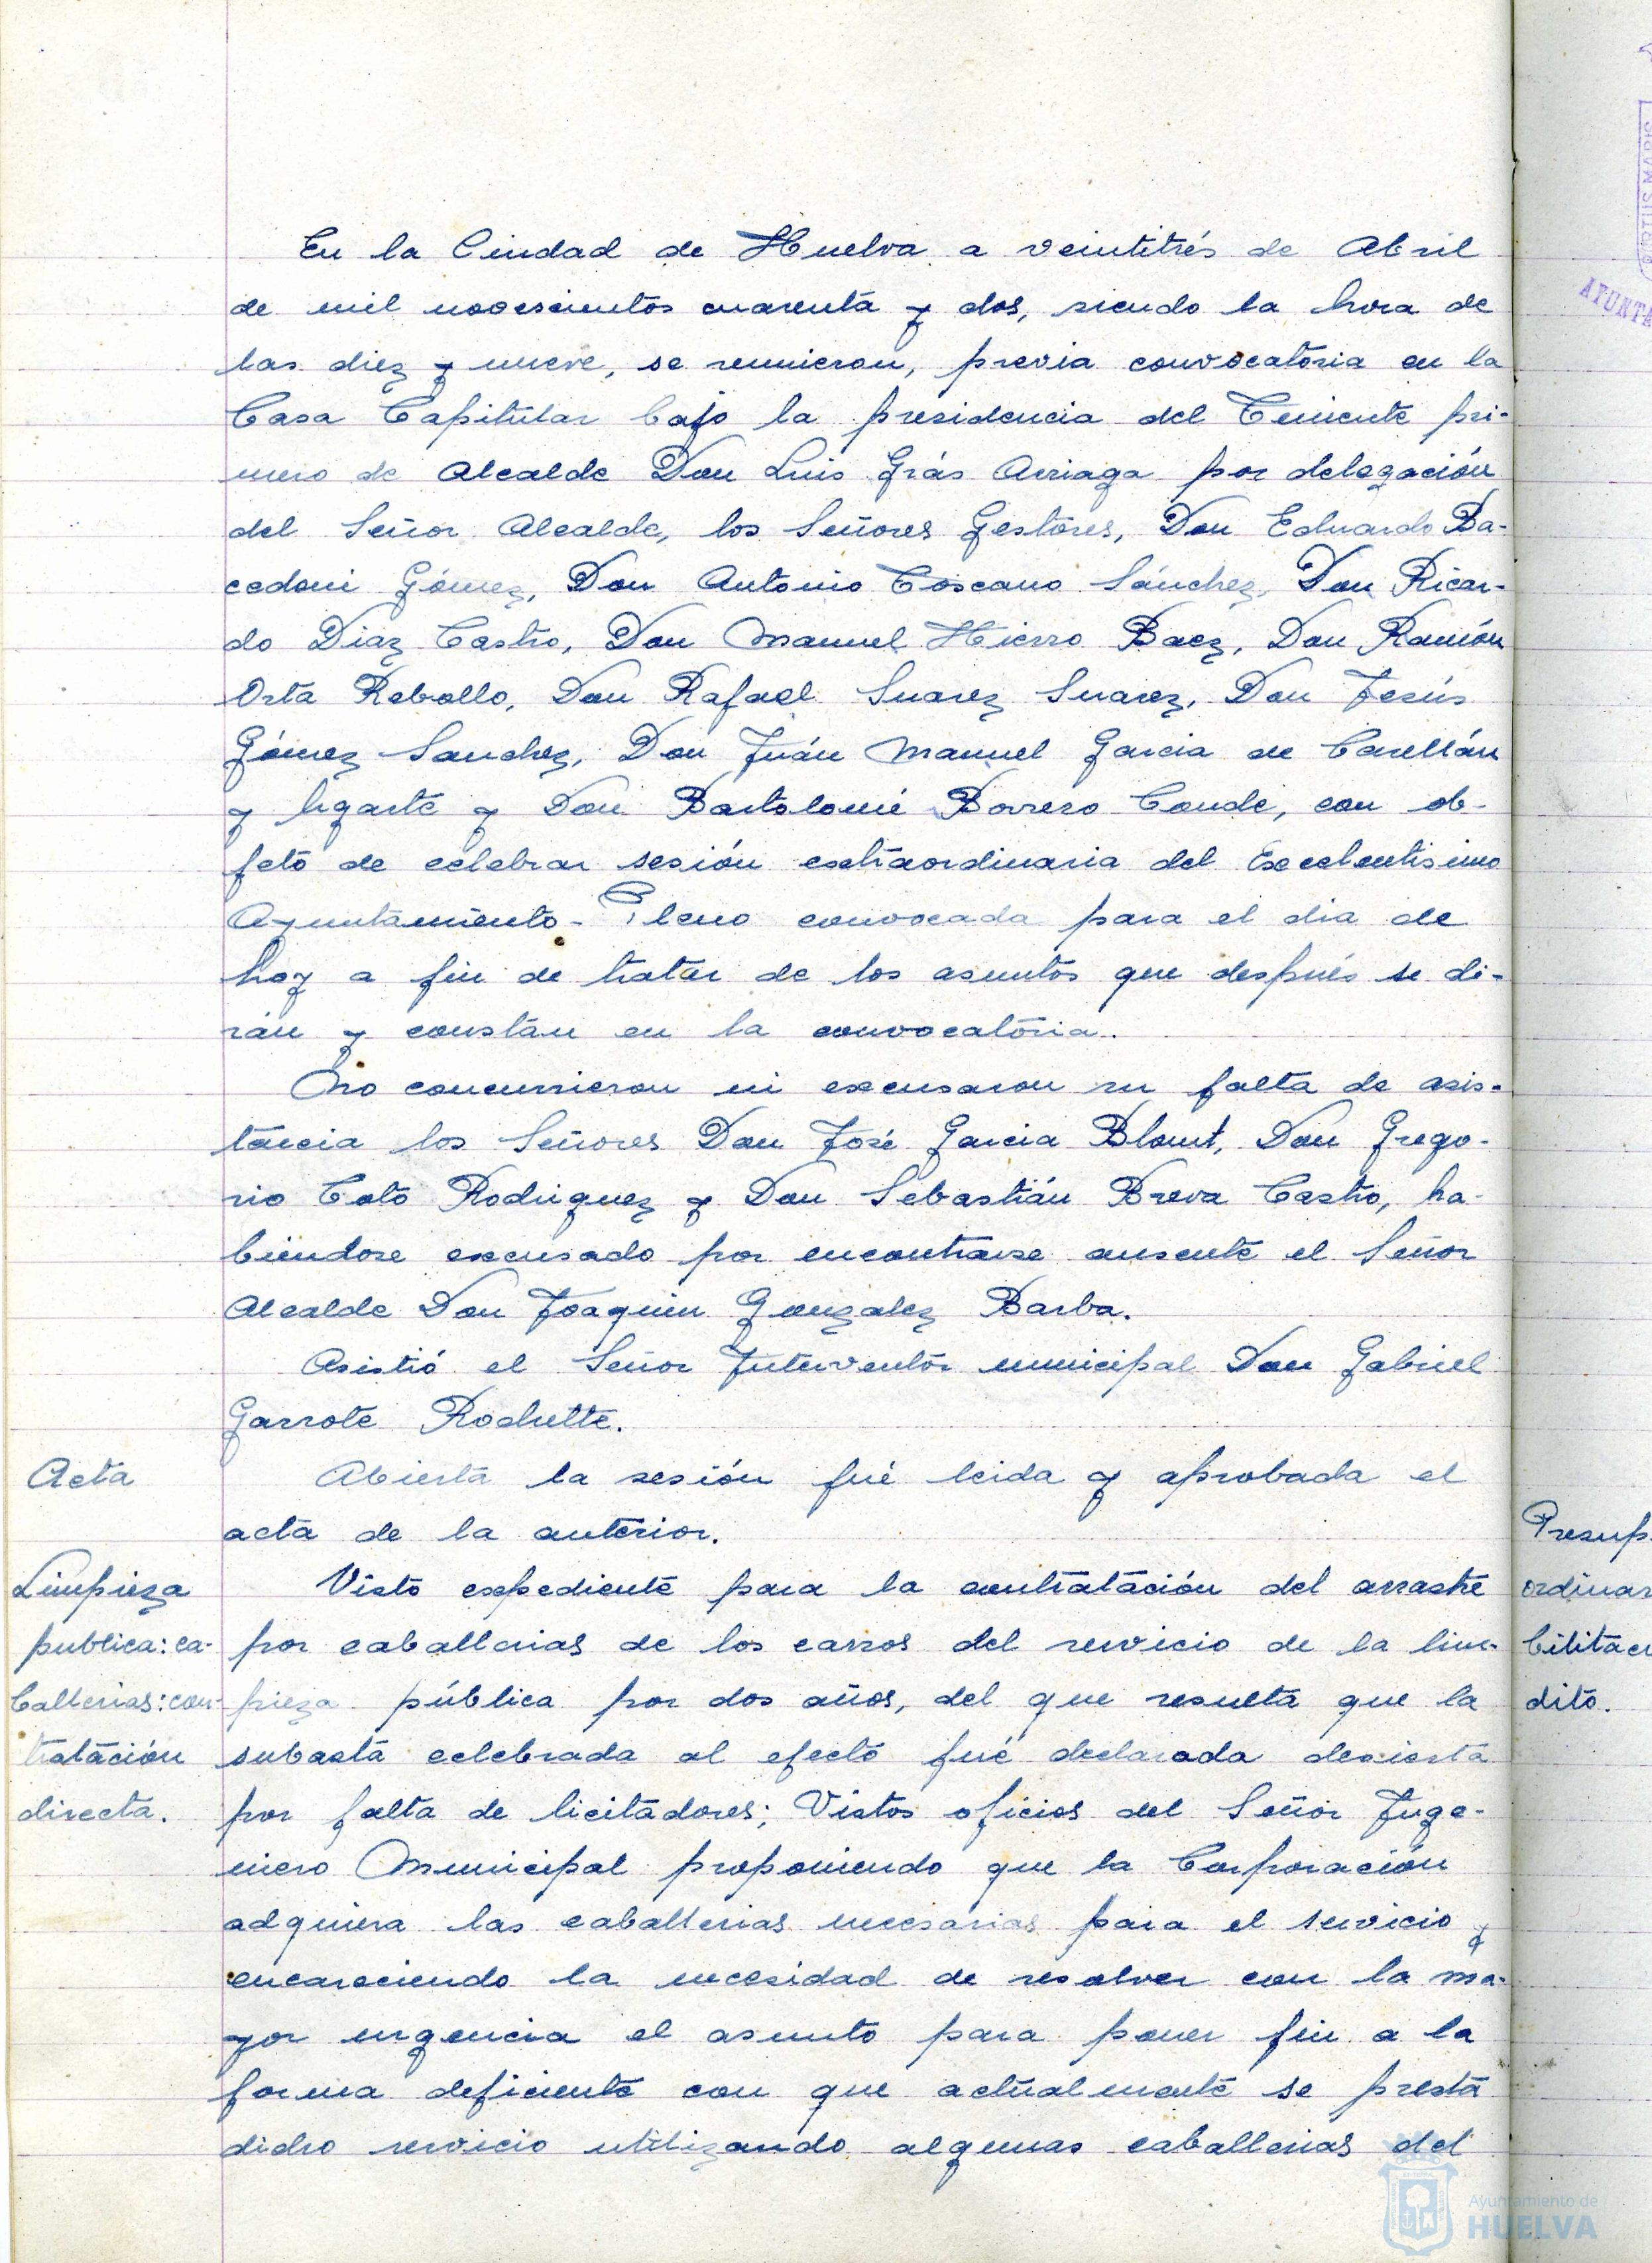 En la Ciudad de Huelva a veintitrés de Abril
de mil novescientos cuarenta y dos, siendo la hora de
las diez y nueve, se reunieron, previa convocatoria en la
Casa Capitular bajo la presidencia del Teniente pri-
mero de Alcalde Don Luis Grás Arriaga por delegación
del Señor Alcalde, los Señores Gestores, Don Eduardo Ba-
cedoni Gómez, Don Antonio Toscano Sánchez, Don Ricar-
do Diaz Castro, Don Manuel Hierro Baez, Don Ramón
Orta Rebollo, Don Rafael Suarez Suarez, Don Jesús
Gómez Sanchez, Don Juán Manuel Garcia de Carellán
y Ugarte y Don Bartolomé Borrero Conde, con ob-
jeto de celebrar sesión extraordinaria del Excelentisimo
Ayuntamiento-Pleno convocada para el dia de
hoy a fin de tratar de los asuntos que después se di-
rán y constán en la convocatoria.
No concurrieron ni excusaron su falta de asis-
tencia los Señores Don José Garcia Blount, Don Grego-
rio Coto Rodriguez y Don Sebastián Breva Castro, ha-
biendose excusado por encontrarse ausente el Señor
Alcalde Don Joaquin Gonzalez Barba.
Asistió el Señor Interventor municipal Don Gabriel
Garrote Rochette.
Acta
Abierta la sesión fué leida y aprobada el
acta de la anterior.
Limpieza
publica: ca-
ballerias: con-
tratación
directa.
Visto expediente para la contratación del arrastre
por caballerias de los carros del servicio de la lim-
pieza pública por dos años, del que resulta que la
subasta celebrada al efecto fué declarada desierta
por falta de licitadores; Vistos oficios del Señor Inge-
niero Municipal proponiendo que la Corporación
adquiera las caballerias necesarias para el servicio y
encareciendo la necesidad de resolver con la ma-
yor urgencia el asunto para poner fin a la
forma deficiente con que actualmente se presta
dicho servicio utilizando algunas caballerias del
Presup.
ordinar
bilitac
dito.
PORTUS MARIS
AYUNTA
Ayuntamiento de
HUELVA